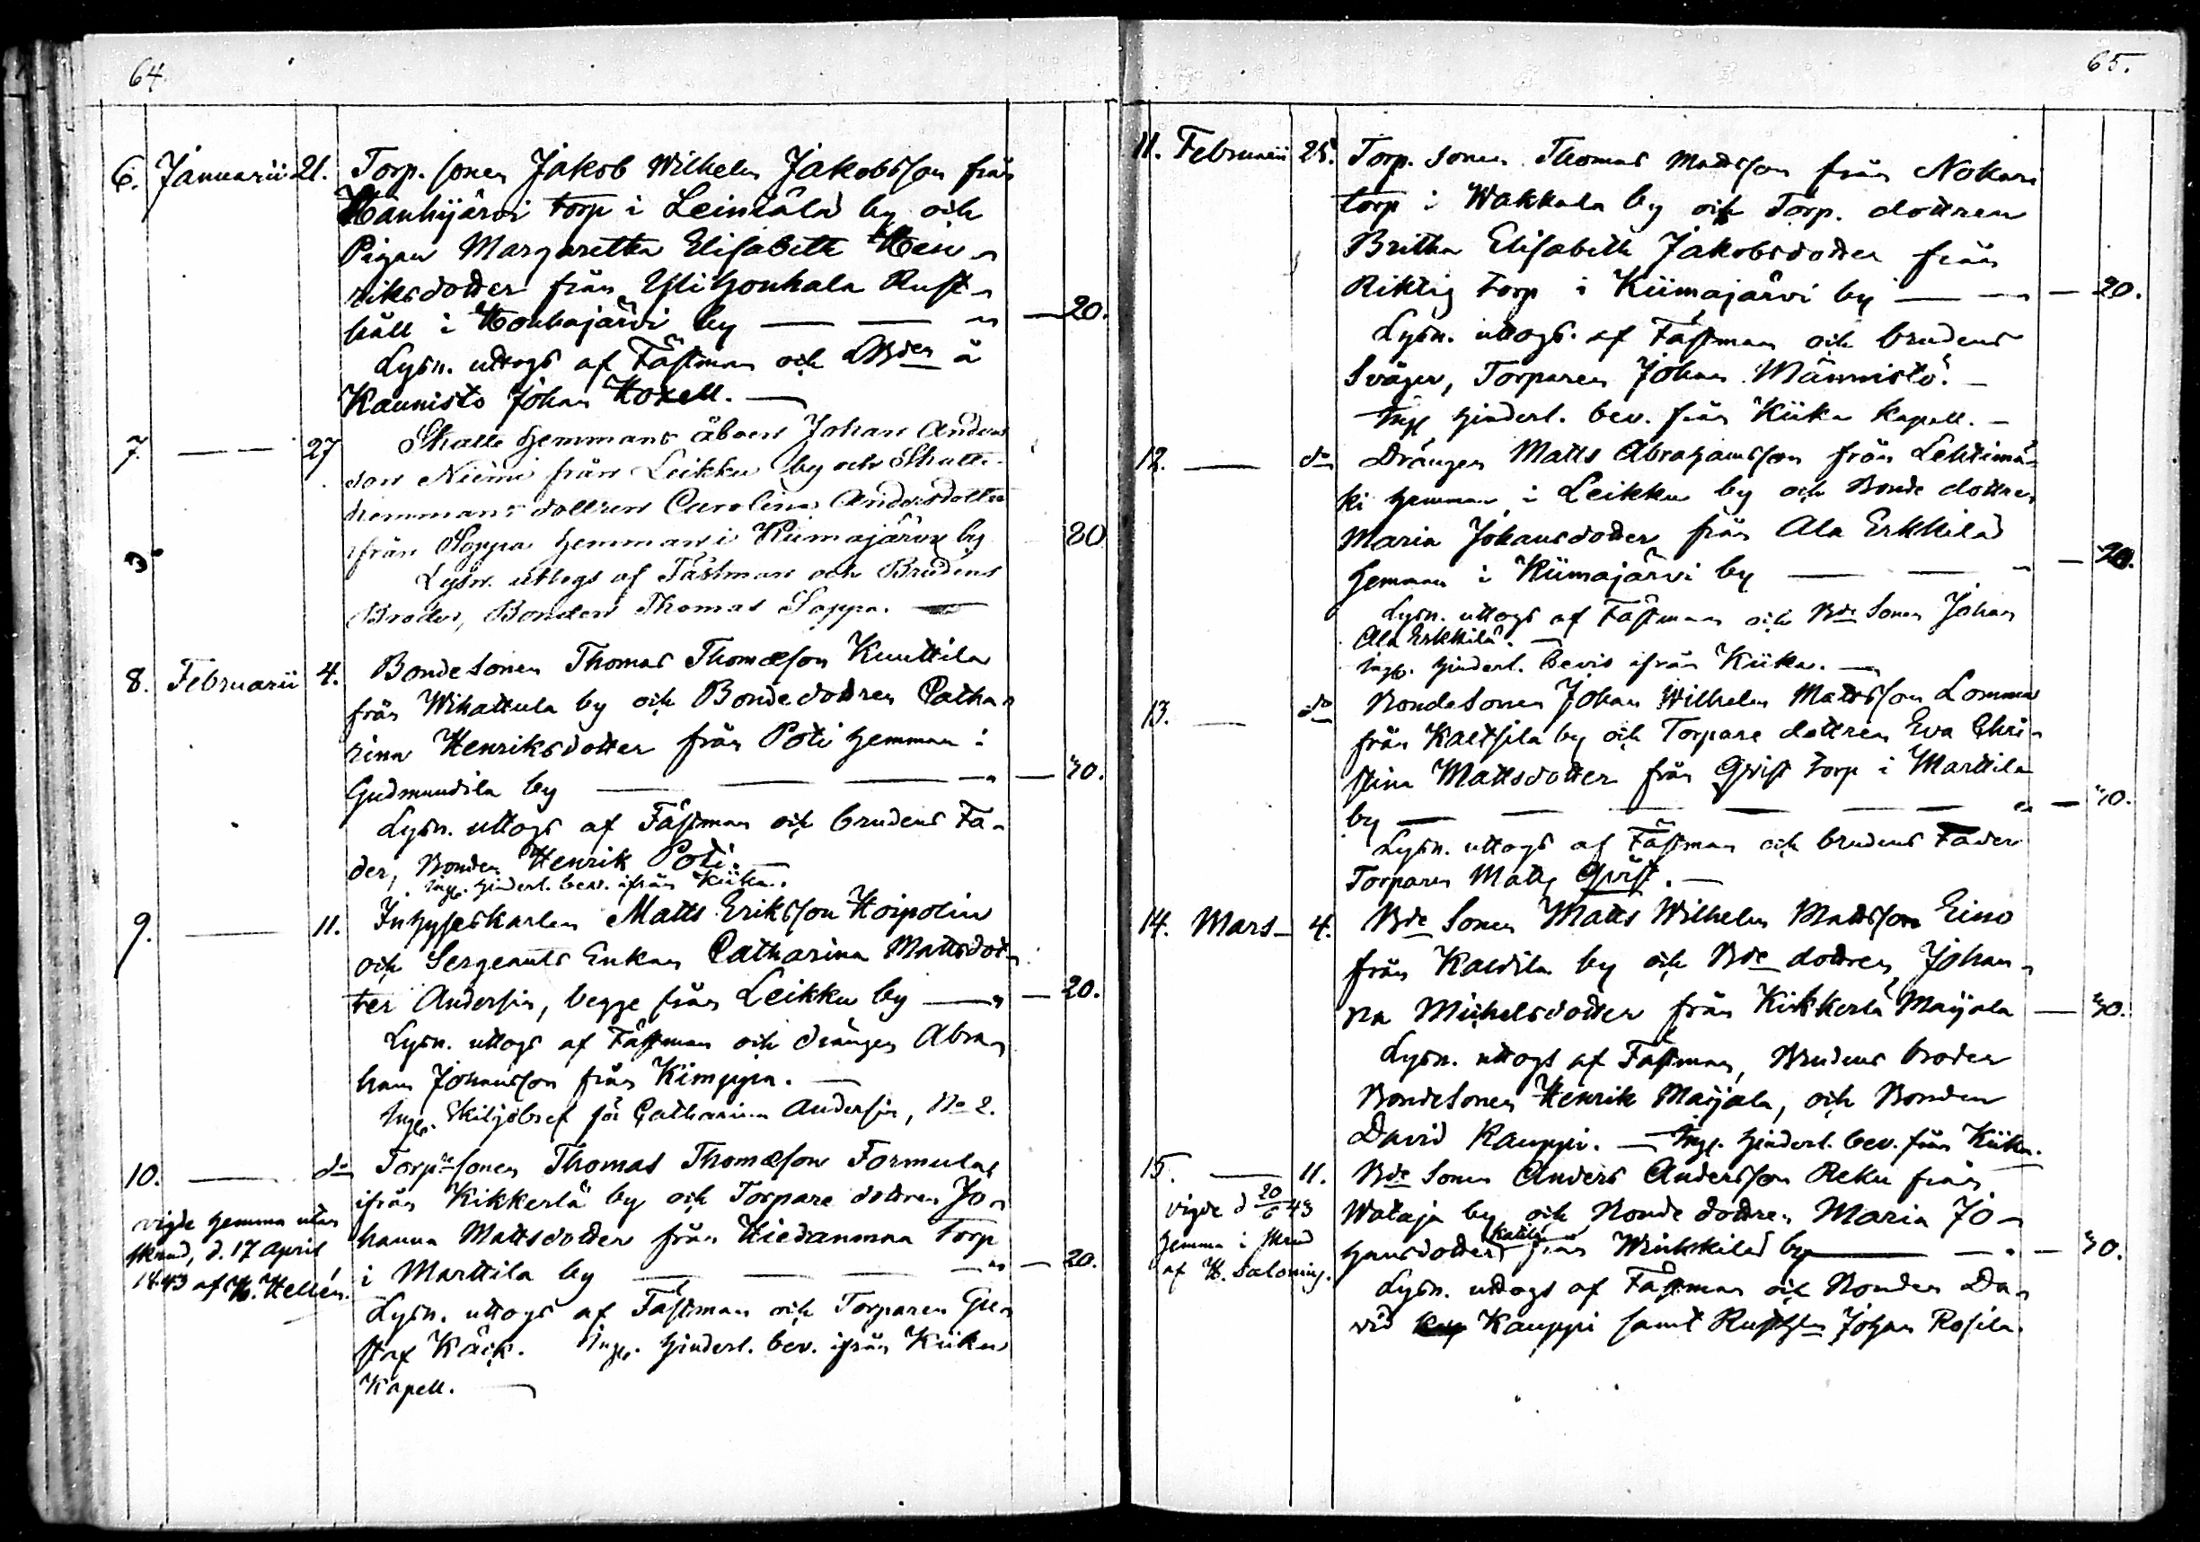 64.
6. Januarii 21. Torp. sonen Jakob Wilhelm Jakobsson från
Hanhijärvi torp i Leiniälä by och
Pigan Margaretha Elisabeth Hen-
riksdotter från Yli Honkala Rust-
håll i Houhajärvi by — 20.
Lysn. uttogs af Fästman och LBden å
Kaunisto Johan Koxell. —
7. — 27 Skatte Hemmans åboen Johan Anders
son Niemi från Leikku by och Skatte-
hemmans dottren Carolina Andersdotter
ifrån Soppa Hemman i Kiimajärvi by 20
Lysn. uttogs af Fästman och Brudens
Broder, Bonden Thomas Soppa. —
8. Februarii 4. Bondesonen Thomas Thomæson Kuuttila
från Wihattula by och Bondedottren Catha-
rina Henriksdotter från Poti Hemman i
Gudmundila by — 40.
Lysn. uttogs af Fästman och brudens Fa-
der, Bonden Henrik Poti. —
Ingr. Hinderl. bev. ifrån Kiika.
9. — 11. Inhyseskarlen Matts Eriksson Koipolin
och Sergeants Enkan Catharina Mattsdot-
ter Andersin, begge från Leikku by — 20.
Lysn. uttogs af Fästman och drängen Abra-
ham Johansson från Kimppa. —
Ingr. Skiljobref för Catharina Andersin, No 2.
10. — do Torpresonen Thomas Thomæson Formula
ifrån Kikkerlä by och Torpare dottren Jo-
hanna Mattsdotter från Hiedanmaa torp
i Marttila by — 20.
Lysn. uttogs af Fästman och Torparen Gu-
staf Käck. Ingr. Hinderl. bev. ifrån Kiika
Kapell. —
vigde hemma utan
skrud, d. 17 April
1843 af H. Hellén.
65.
11. Februarii 25. Torp. sonen Thomas Mattsson från Nokari
torp i Wakkala by och Torp. dottren
Britha Elisabeth Jakobsdotter från
Riktig torp i Kiimajärvi by — 20.
Lysn. uttogs af Fästman och brudens
Svåger, Torparen Johan Männistö. —
Ingr. Hinderl. bev. från Kiika Kapell. —
12. — do Drängen Matts Abrahamsson från Lehtimä-
ki Hemman i Leikku by och Bonde dottren
Maria Johansdotter från Ala Erkkilä
Hemman i Kiimajärvi by — 20.
Lysn. uttogs af Fästman och Bde Sonen Johan
Ala Erkkilä. —
Ingr. Hinderl. bevis ifrån Kiika. —
13. — do BondeSonen Johan Wilhelm Mattsson Lomma
från Kaltsila by och Torpare dottren Eva Chri-
stina Mattsdotter från Qvist torp i Marttila
by — 40.
Lysn. uttogs af Fästman och brudens Fader
Torparen Matts Qvist. —
14. Mars — 4. Bde Sonen Matts Wilhelm Mattsson Eino
från Kaldila by och Bde dottren Johan-
na Michelsdotter från Kikkerlä Maijala — 40.
Lysn. uttogs af Fästman, Brudens broder
BondeSonen Henrik Maijala, och Bonden
David Kauppi. — Ingr. Hinderl. bev. från Kiika.
15. — 11. Bde Sonen Anders Andersson Reku från
Wataja by och Bonde dottren Maria Jo-
hansdotter Kallila från Winkkilä by — 40.
Lysn. uttogs af Fästman och Bonden Da-
vid Kauppi samt Rusth Johan Rosila.
vigde d 20/6 43
hemma i skrud
af H. Saloning.